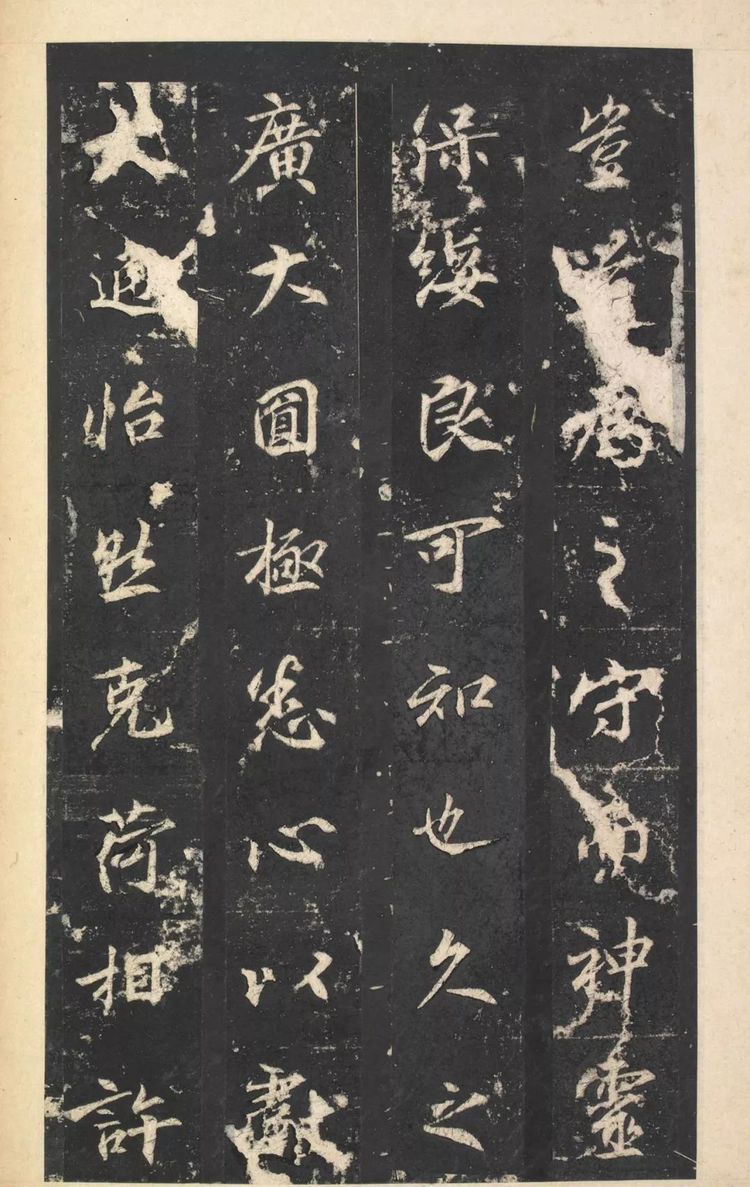 豈為之守神靈
保綏良可知也久之
廣大圓極悉心以獻
大通怡然克荷相許